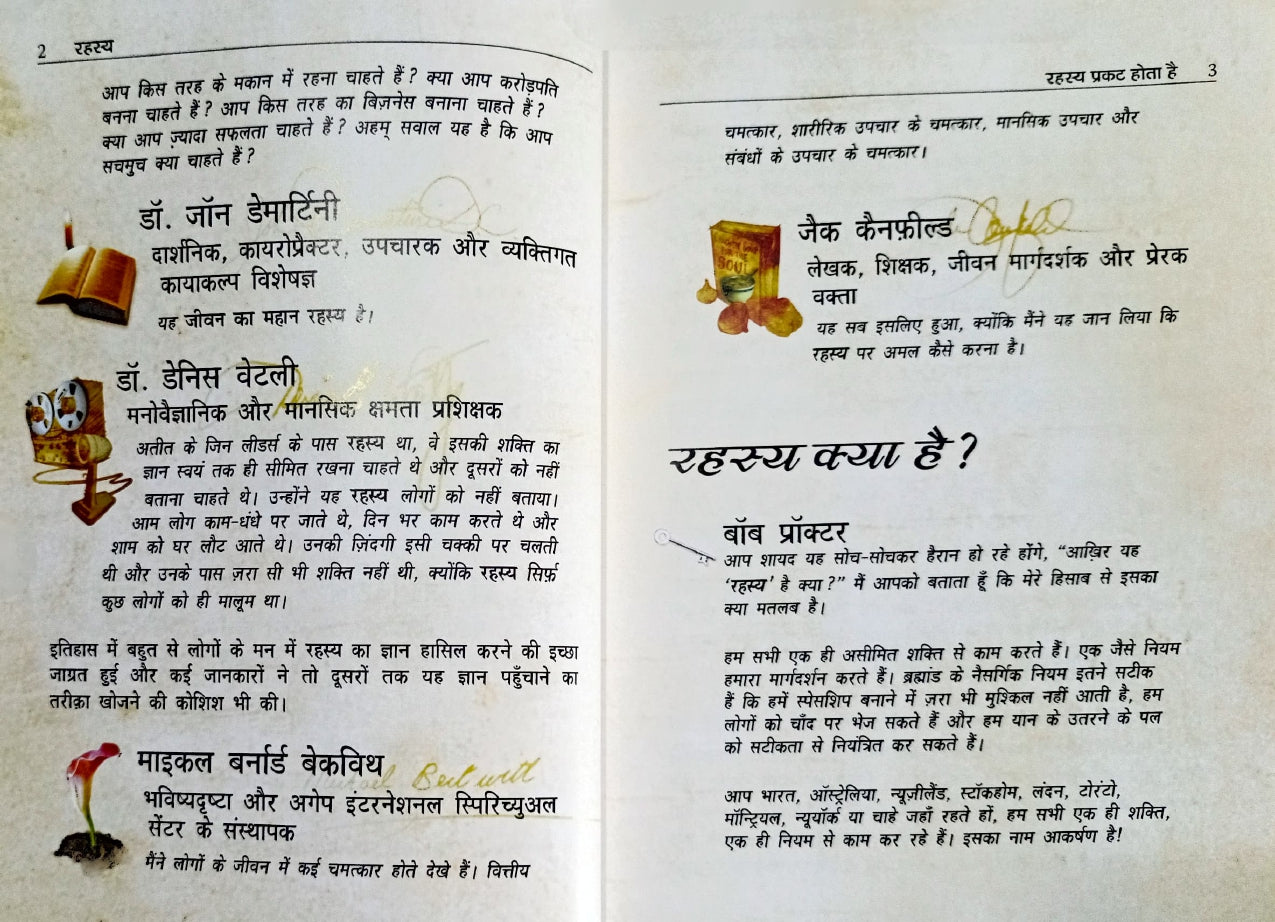 2 रहस्य
आप किस तरह के मकान में रहना चाहते हैं? क्या आप करोड़पति
बनना चाहते हैं? आप किस तरह का बिज़नेस बनाना चाहते हैं?
क्या आप ज़्यादा सफलता चाहते हैं? अहम् सवाल यह है कि आप
सचमुच क्या चाहते हैं?
डॉ. जॉन डेमार्टिनी
दार्शनिक, कायरोप्रैक्टर, उपचारक और व्यक्तिगत
कायाकल्प विशेषज्ञ
यह जीवन का महान रहस्य है।
डॉ. डेनिस वेटली
मनोवैज्ञानिक और मानसिक क्षमता प्रशिक्षक
अतीत के जिन लीडर्स के पास रहस्य था, वे इसकी शक्ति का
ज्ञान स्वयं तक ही सीमित रखना चाहते थे और दूसरों को नहीं
बताना चाहते थे। उन्होंने यह रहस्य लोगों को नहीं बताया।
आम लोग काम-धंधे पर जाते थे, दिन भर काम करते थे और
शाम को घर लौट आते थे। उनकी ज़िंदगी इसी चक्की पर चलती
थी और उनके पास ज़रा सी भी शक्ति नहीं थी, क्योंकि रहस्य सिर्फ़
कुछ लोगों को ही मालूम था।
इतिहास में बहुत से लोगों के मन में रहस्य का ज्ञान हासिल करने की इच्छा
जाग्रत हुई और कई जानकारों ने तो दूसरों तक यह ज्ञान पहुँचाने का
तरीक़ा खोजने की कोशिश भी की।
माइकल बर्नार्ड बेकविथ
भविष्यदृष्टा और अगेप इंटरनेशनल स्पिरिच्युअल
सेंटर के संस्थापक
मैंने लोगों के जीवन में कई चमत्कार होते देखे हैं। वित्तीय
रहस्य प्रकट होता है 3
चमत्कार, शारीरिक उपचार के चमत्कार, मानसिक उपचार और
संबंधों के उपचार के चमत्कार।
SOUL
जैक कैनफ़ील्ड
लेखक, शिक्षक, जीवन मार्गदर्शक और प्रेरक
वक्ता
यह सब इसलिए हुआ, क्योंकि मैंने यह जान लिया कि
रहस्य पर अमल कैसे करना है।
रहस्य क्या है?
बॉब प्रॉक्टर
आप शायद यह सोच-सोचकर हैरान हो रहे होंगे, “आख़िर यह
‘रहस्य’ है क्या?” मैं आपको बताता हूँ कि मेरे हिसाब से इसका
क्या मतलब है।
हम सभी एक ही असीमित शक्ति से काम करते हैं। एक जैसे नियम
हमारा मार्गदर्शन करते हैं। ब्रह्मांड के नैसर्गिक नियम इतने सटीक
हैं कि हमें स्पेसशिप बनाने में ज़रा भी मुश्किल नहीं आती है, हम
लोगों को चाँद पर भेज सकते हैं और हम यान के उतरने के पल
को सटीकता से नियंत्रित कर सकते हैं।
आप भारत, ऑस्ट्रेलिया, न्यूज़ीलैंड, स्टॉकहोम, लंदन, टोरंटो,
मॉन्ट्रियल, न्यूयॉर्क या चाहे जहाँ रहते हों, हम सभी एक ही शक्ति,
एक ही नियम से काम कर रहे हैं। इसका नाम आकर्षण है!